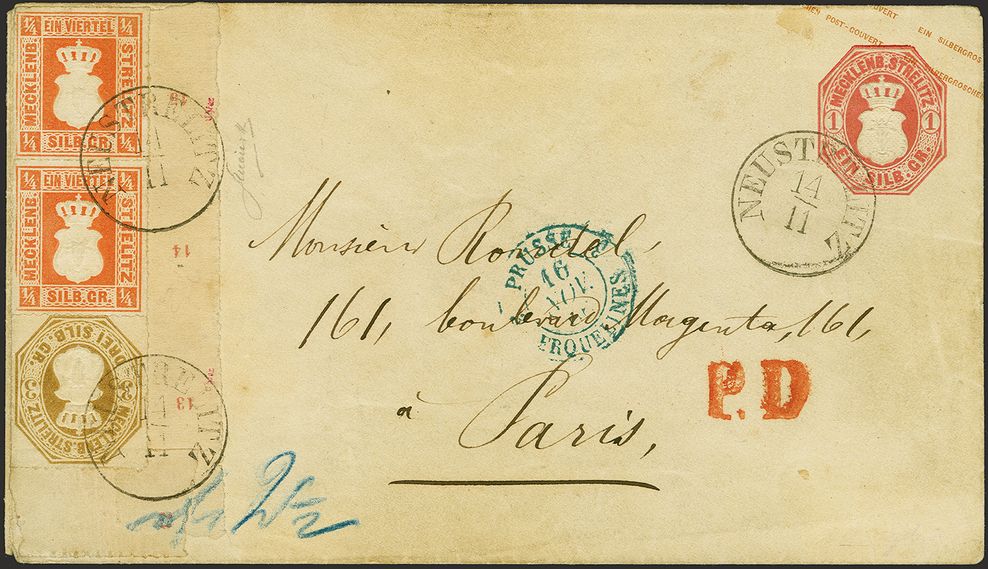 EIN VIERTEL
1/4 1/4
MECKLENB. STRELITZ
1/4 SILB. GR. 1/4
EIN VIERTEL
1/4 1/4
MECKLENB. STRELITZ
1/4 SILB. GR. 1/4
DREI SILB. GR.
3 3
MECKLENB. STRELITZ
NEUSTRELITZ
14
11
14
13
NEUSTRELITZ
14
11
POST-COUVERT
EIN SILBERGROS
SILBERGROSCHEN
MECKLENB. STRELITZ
1 1
EIN SILB. GR.
NEUSTRELITZ
14
11
PRUSSE
16
NOV.
Monsieur
161, boulevard Magenta, 161,
P.D
à
Paris,
2 1/2